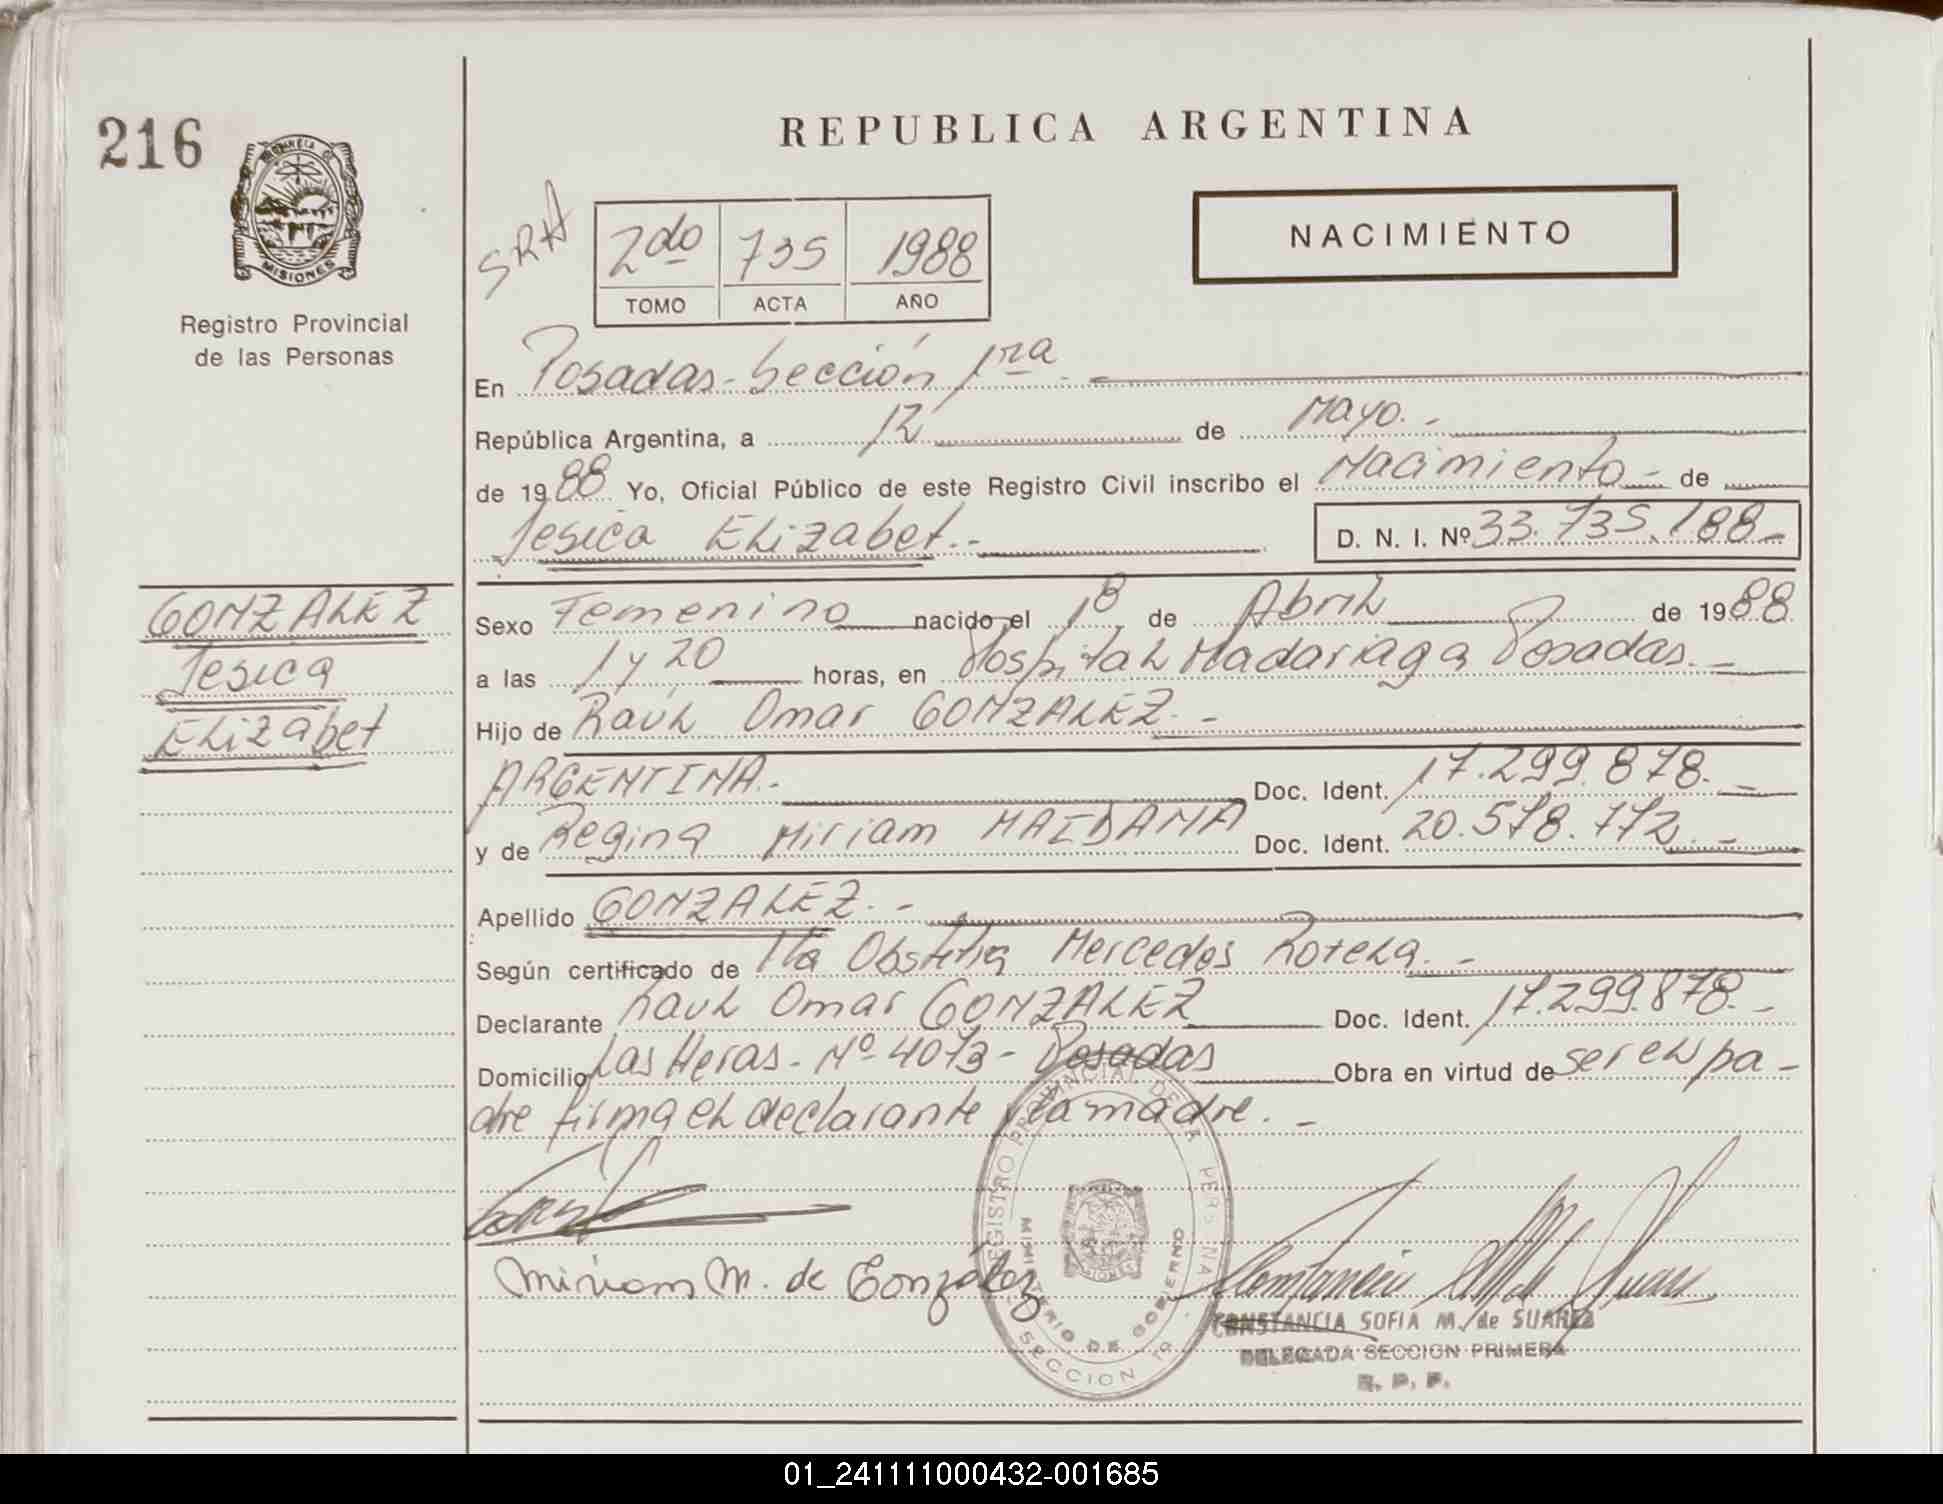 216
REPUBLICA ARGENTINA
PROVINCIA DE
MISIONES
Registro Provincial
de las Personas
SRA
2do 735 1988
TOMO ACTA AÑO
NACIMIENTO
En Posadas - Sección 1ra. -
República Argentina, a 12 de Mayo. -
de 1988 Yo, Oficial Público de este Registro Civil inscribo el Nacimiento - de
Jesica Elizabet. - D. N. I. Nº 33.735.188 -
GONZALEZ
Jesica
Elizabet
Sexo Femenino nacido el 18 de Abril de 1988
a las 1 y 20 horas, en Hospital Madariaga Posadas. -
Hijo de Raúl Omar GONZALEZ. -
ARGENTINA. - Doc. Ident. 17.299.878. -
y de Regina Miriam MAIDANA Doc. Ident. 20.578.772. -
Apellido GONZALEZ. -
Según certificado de la Obstetra Mercedes Rotela. -
Declarante Raul Omar GONZALEZ Doc. Ident. 17.299.878. -
Domicilio Las Heras - Nº 4073 - Posadas Obra en virtud de ser el pa -
dre firma el declarante y la madre. -
Miriam M. de González
REGISTRO PROVINCIAL DE LA PERSONA
MINISTERIO DE GOBIERNO
SECCION 1a
CONSTANCIA SOFIA M. de SUAREZ
DELEGADA SECCION PRIMERA
R. P. P.
01_241111000432-001685